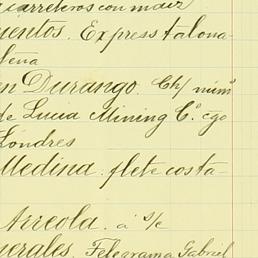 carreteros con maiz
uentos. Express talona-
leña
en Durango. Ch/ núm.
de Lucia Mining Co. cgo
Londres
Medina. flete costa-
Arreola. a s/c
nerales. Telegrama Gabriel